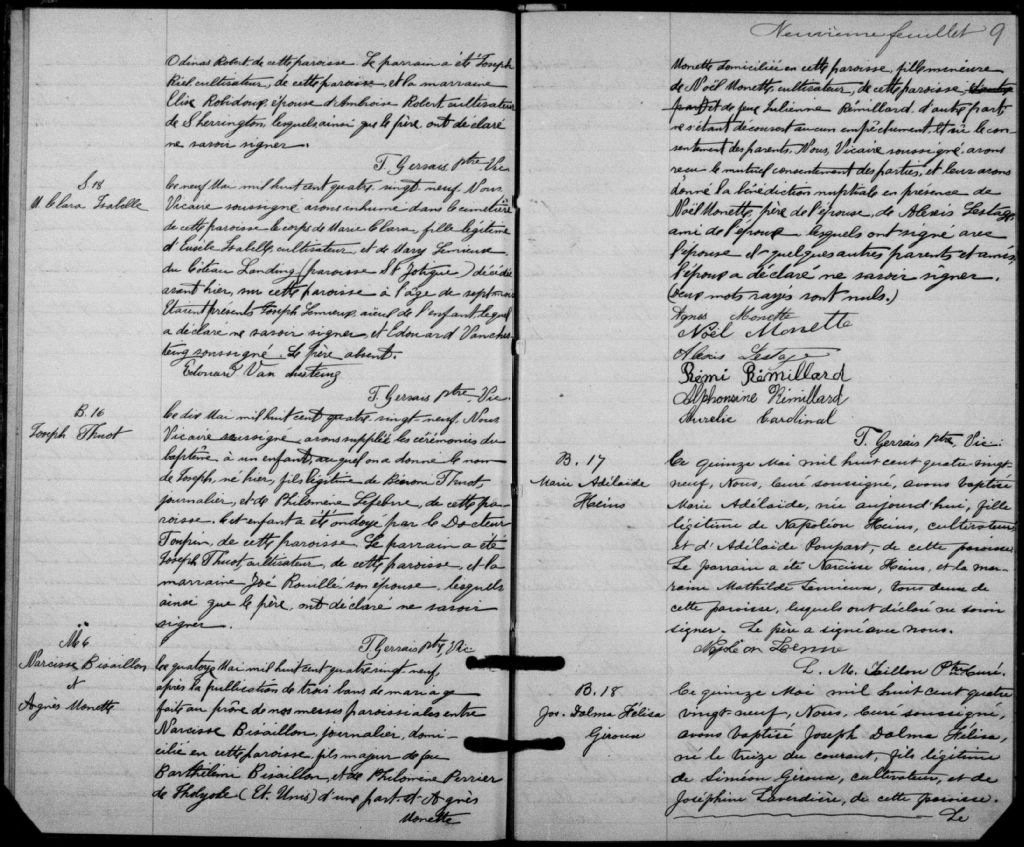 Odinas Robert de cette paroisse. Le parrain a été Joseph
Riel cultivateur, de cette paroisse, et la marraine
Elise Robidoux épouse d'Ambroise Robert cultivateur
de Sherrington, lesquels ainsi que le père, ont déclaré
ne savoir signer.
T. Gervais ptre, Vic.
S. 18
M. Clara Isabelle
Le neuf Mai mil huit cent quatre-vingt-neuf, Nous
Vicaire soussigné avons inhumé dans le cimetière
de cette paroisse le corps de Marie Clara, fille légitime
d'Eusèbe Isabelle, cultivateur, et de Mary Lemieux,
du Côteau Landing (paroisse St Zotique) décédée
avant hier, sur cette paroisse à l'âge de sept mois
Etaient présents Joseph Lemieux, aieul de l'enfant lequel
a déclaré ne savoir signer et Edouard Vanches
teing soussigné. Le père absent.
Edouard Van
T. Gervais ptre, Vic.
B. 16
Joseph Thuot
Le dix Mai mil huit cent quatre-vingt-neuf, Nous
Vicaire soussigné, avons suppléé les cérémonies du
baptême à un enfant, auquel on a donné le nom
de Joseph, né hier, fils légitime de Thuot
journalier, et de Philomène Lefebvre, de cette pa-
roisse. Cet enfant a été ondoyé par le Docteur
Toupin, de cette paroisse. Le parrain a été
Joseph Thuot cultivateur, de cette paroisse, et la
marraine Zoé Rouillé son épouse, lesquels
ainsi que le père, ont déclaré ne savoir
signer.
T. Gervais ptre, Vic
M. 6
Narcisse Bisaillon
et
Agnès Monette
Le quatorze Mai mil huit cent quatre-vingt-neuf,
après la publication de trois bans de mariage
faite au prône de nos messes paroissiales entre
Narcisse Bisaillon, journalier, domi-
cilié en cette paroisse, fils majeur de feu
Barthélemi Bisaillon, et de Philomène Perrier
de Holyoke (Et. Unis) d'une part, et Agnès
Monette
Neuvième feuillet 9
Monette domiciliée en cette paroisse, fille mineure
de Noël Monette, cultivateur, de cette paroisse, d'autre
part) et de feue Julienne Rémillard, d'autre part
ne s'étant découvert aucun empêchement, et vu le con-
sentement des parents, Nous, Vicaire soussigné, avons
recu le mutuel consentement des parties, et leur avons
donné la bénédiction nuptiale en présence de
Noël Monette, père de l'épouse, de Alexis Lestage,
ami de l'époux lesquels ont signé avec
l'épouse et quelques autres parents et amis,
l'époux a déclaré ne savoir signer.
(Deux mots rayés sont nuls.)
Agnes Monette
Noël Monette
Alexis Lestage
Rémi Rémillard
Alphonsine Rémillard
Aurelie Cardinal
T. Gervais ptre, Vic.
B. 17
Marie Adélaïde
Heins
Ce quinze Mai mil huit cent quatre vingt-
neuf, Nous, Curé soussigné, avons baptisé
Marie Adélaïde, née aujourd'hui, fille
légitime de Napoléon Heins, cultivateur,
et d'Adélaïde Poupart, de cette paroisse.
Le parrain a été Narcisse Heins, et la mar-
raine Mathilde Lemieux, tous deux de
cette paroisse, lesquels ont déclaré ne savoir
signer. Le père a signé avec nous.
L. M. Taillon Ptre Curé.
B. 18
Jos. Dalma Hélisa
Giroux
Ce quinze Mai mil huit cent quatre
vingt-neuf, Nous, Curé soussigné,
avons baptisé Joseph Dalma Hélisa,
né le treize du courant, fils légitime
de Siméon Giroux, cultivateur, et de
Joséphine Laverdière, de cette paroisse.
Le